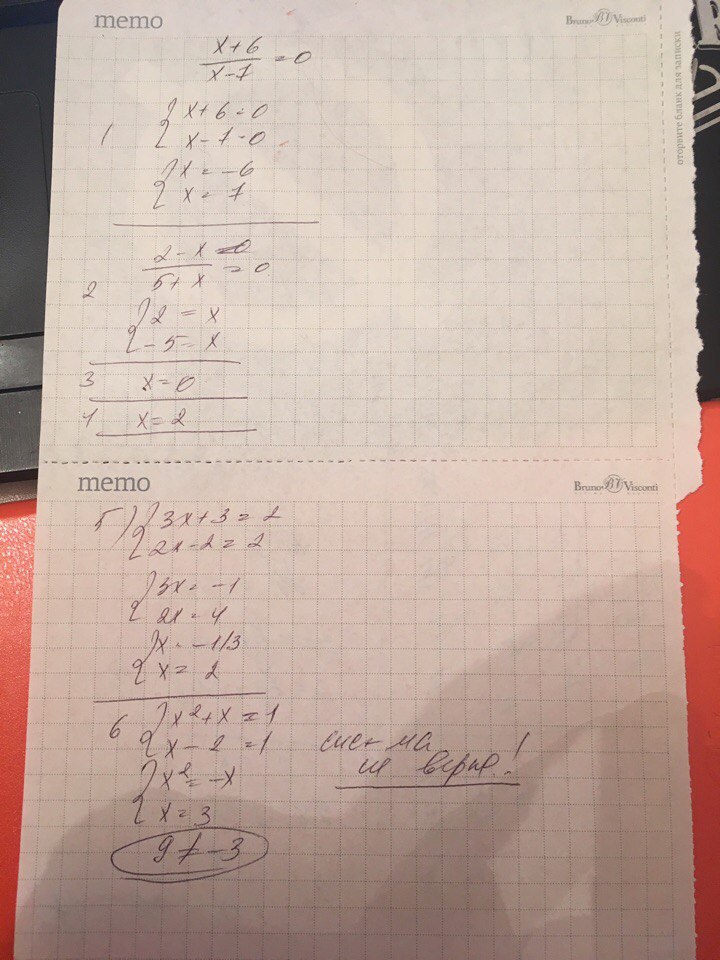 memo
Bruno BV Visconti
оторвите бланк для записки
x+6
x-7 = 0
1 { x+6=0
x-7=0
{ x = -6
x = 7
2 2-x=0
5+x = 0
{ 2 = x
-5 = x
3 x=0
4 x=2
memo
Bruno BV Visconti
5) { 3x+3=2
2x-2=2
{ 3x=-1
2x=4
{ x=-1/3
x=2
6 { x²+x=1
x-2=1
система
не верна!
{ x²=-x
x=3
9≠-3